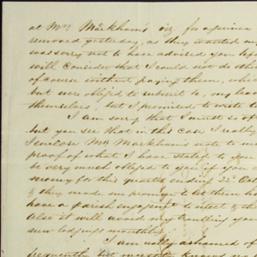 at Mrs Markham's viz for a
removed yesterday, as they wanted my
was sorry not to have advised you bef
will consider that I could not do othe
of course without paying them, whic
but was oblig'd to submit to, my
themselves, but I promised to write t
I am sorry that I must so of
but you see that in this case I really
I enclose Mrs Markham's note to me
proof of what I have stated to you
be very much obliged to you if you
money for this quarter ending
they made me promise to let them ha
have a parish engagement to
Also it will avoid my troubling you
new lodgings monthly
I am really ashamed of
frequently but